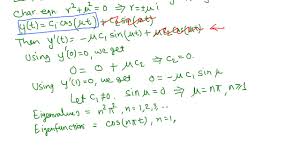 Char eqn r²+μ²=0 ⇒ r=±μi
y(t)=C₁cos(μt)+C₂sin(μt)
Then y'(t)=-μC₁sin(μt)+μC₂cos(μt) ←
Using y'(0)=0, we get
0 = 0 + μC₂ ⇒ C₂=0.
Using y'(1)=0, we get 0=-μC₁ sinμ
Let C₁≠0. sinμ=0 ⇒ μ=nπ, n≥1
Eigenvalues = n²π², n=1,2,3...
Eigenfunction = cos(nπt), n=1,